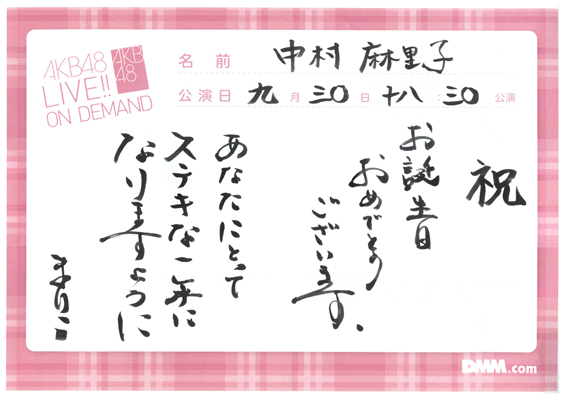 AKB48
LIVE!!
ON DEMAND
AKB
48
名前 中村 麻里子
公演日 九月三〇日 十八:三〇公演
祝
お誕生日
おめでとう
ございます。
あなたにとって
ステキな一年に
なりますように
まりこ
DMM.com